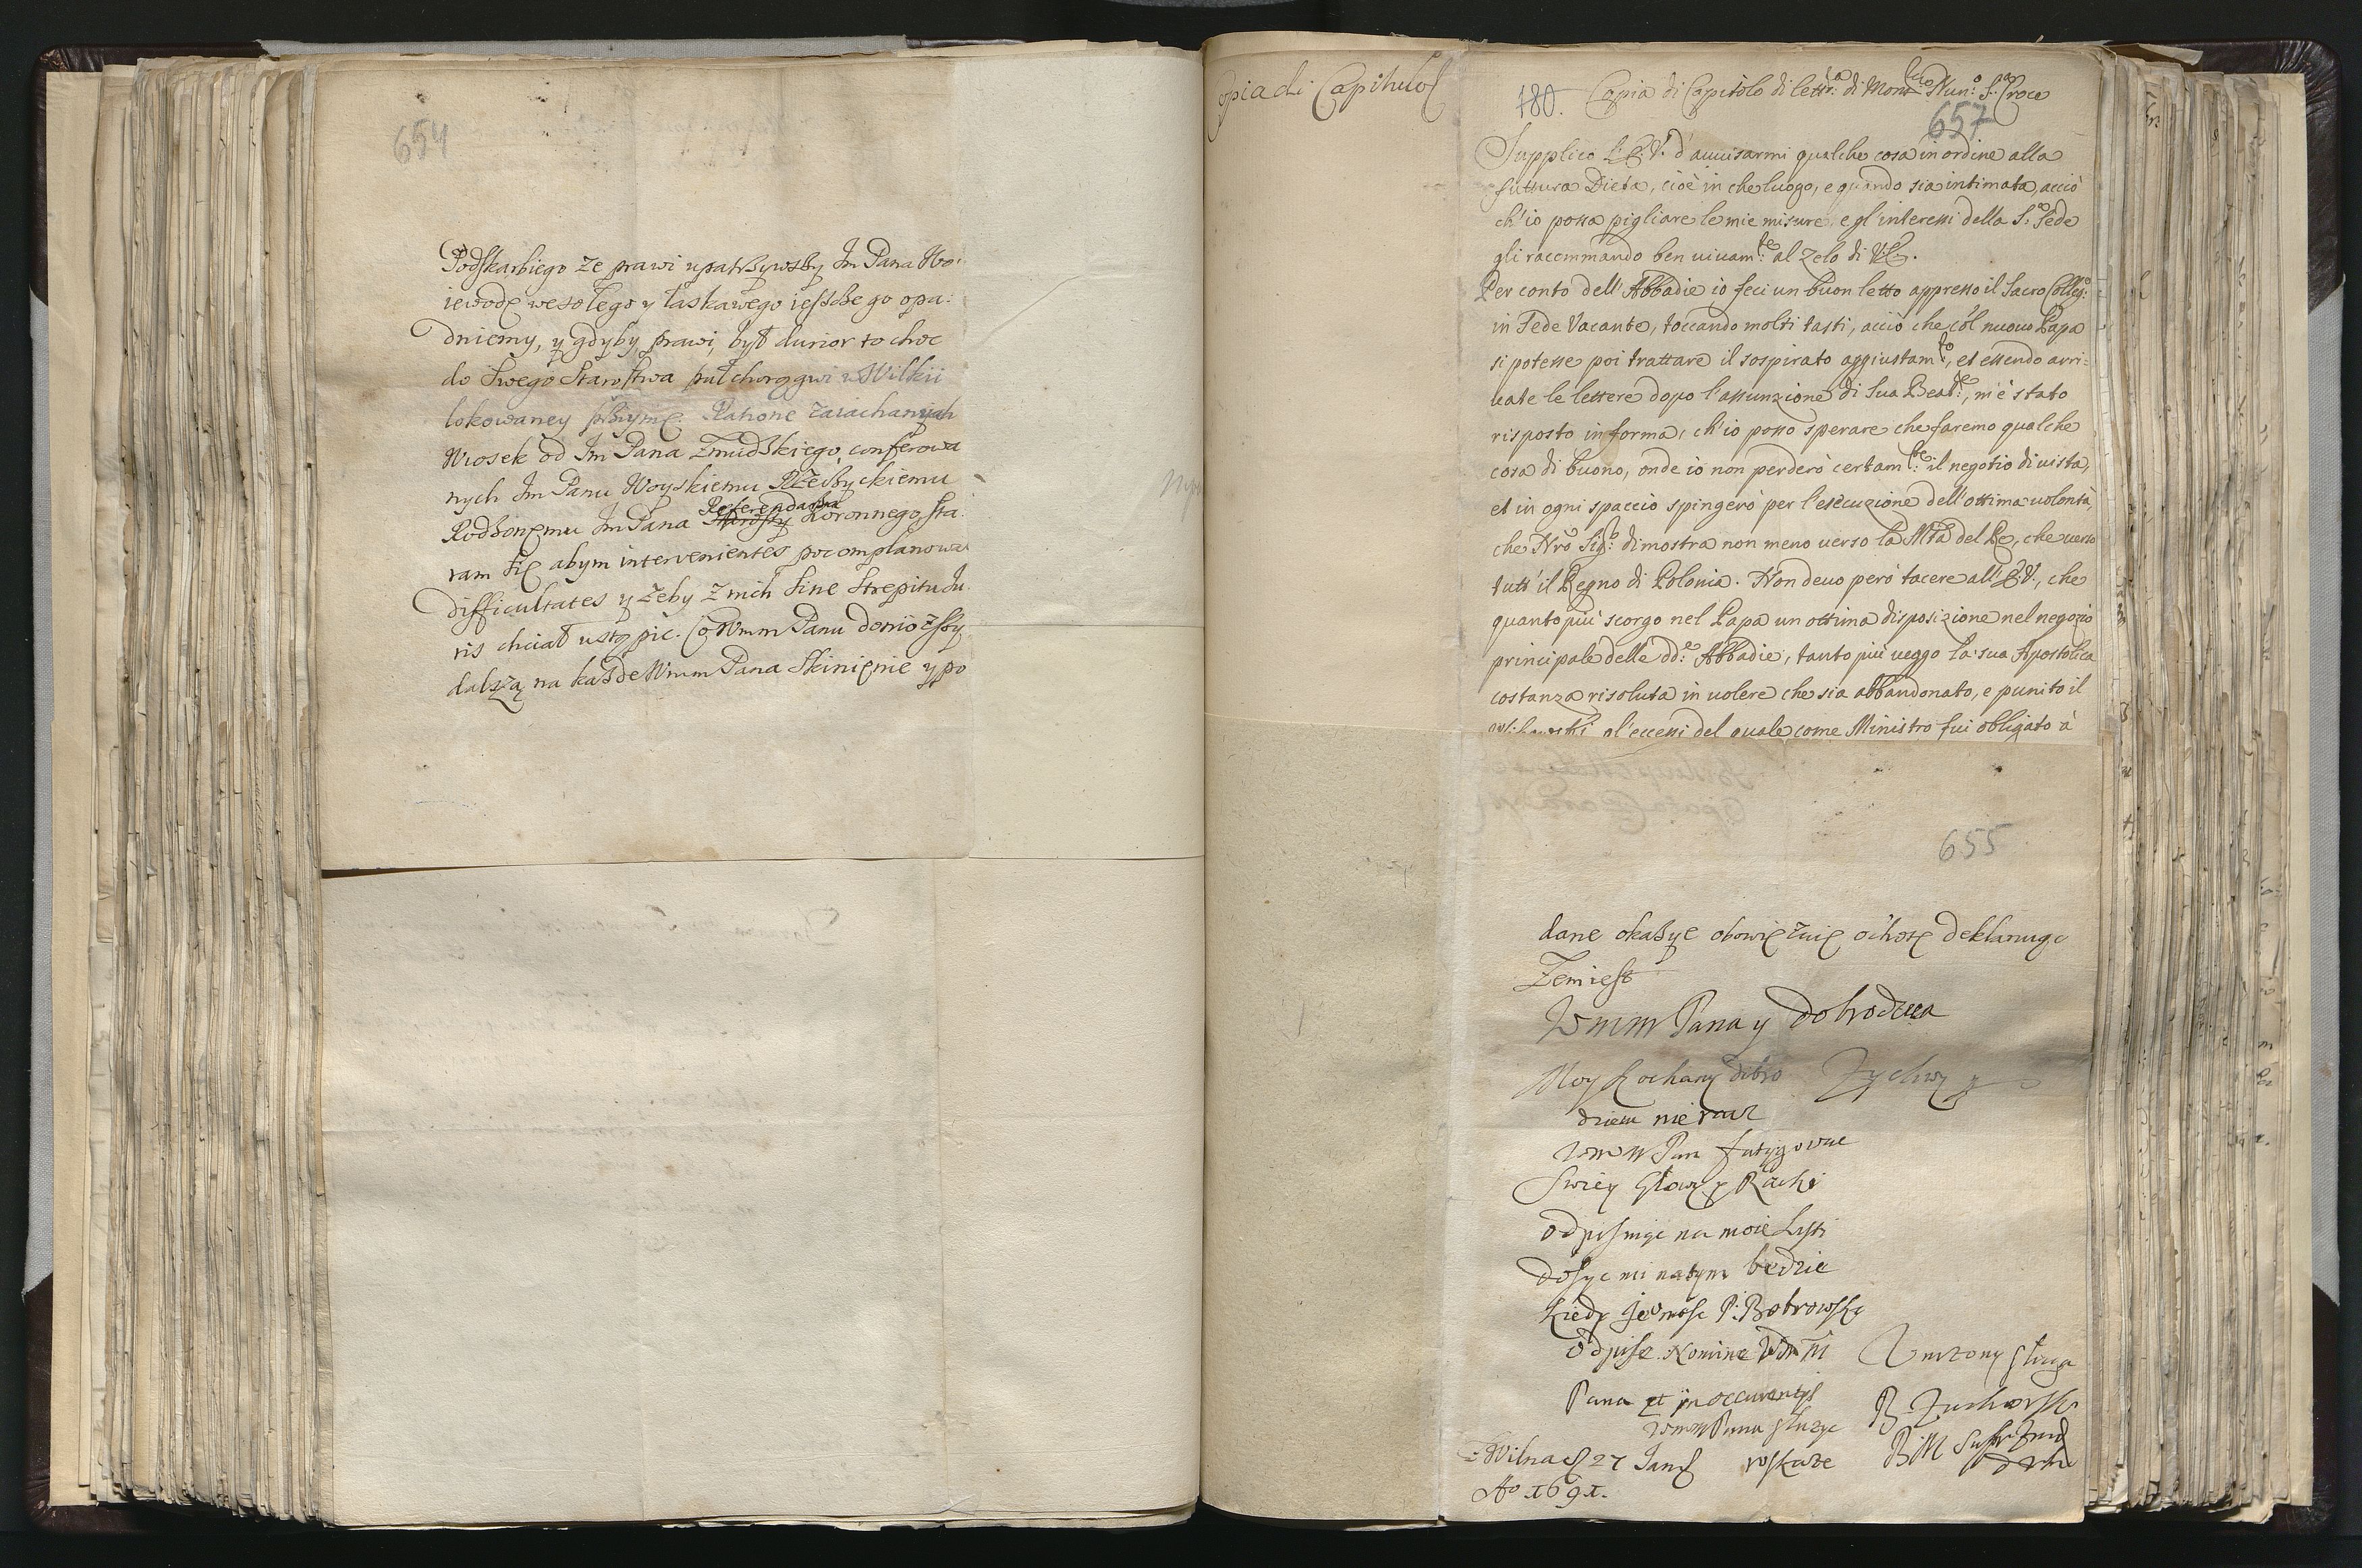 654
Podskarbiego ze prawi upatrzywszy Im Pana Wo:
iewodę wesołego y łaskawego ieszcze go opa:
dniemy, y gdyby, prawi, był durior to choc
do swego Starostwa puł chorągwi w Wilkii
lokowaney przyimę. Ratione zaiachanych
Wiosek od Im Pana Zmudzkiego, conferowa
nych Im Panu Woyskiemu
Rodzonemu Im Pana Referendarza Koronnego sta:
ram się abym interveniens pocomplanowa
difficultates y zeby z nich sine strepitu Ju
ris chciał ustąpic. Co Wmm Panu
dalszą na kazde Wmm Pana skinienie y po
opia di Capitulo
180. Copia di Capitolo di lettr.ª di Mons.r Nun.º S.ª Croce
657
Supplico L'E.V. d'auuisarmi qualche cosa in ordine alla
futtura Dieta, cioè in che luogo, e quando sia intimata, acciò
ch'io possa pigliare le mie misure, e gl'interessi della S.ª Sede
gli raccommando ben uiuam.te al zelo di V.E.
Per conto dell'Abbadie io feci un buon letto appresso il Sacro Colleg.º
in Sede Vacante, toccando molti tasti, acciò che col nuouo Papa
si potesse poi trattare il sospirato aggiustam.to, et essendo arri=
uate le lettere dopo l'assunzione di Sua Beat.e, m'è stato
risposto in forma, ch'io posso sperare che faremo qualche
cosa di buono, onde io non perderò certam.te il negotio di uista,
et in ogni spaccio spingerò per l'esecuzione dell'ottima uolontà,
che Nro Sig.e dimostra non meno uerso la Mtà del Re, che uerso
tutt'il Regno di Polonia. Non deuo però tacere all'E.V., che
quanto più scorgo nel Papa un ottima disposizione nel negozio
principale delle dd.e Abbadie, tanto più ueggo la sua Apostolica
costanza risoluta in uolere che sia abbandonato, e punito il
gl'eccessi del quale come Ministro fui obligato à
655
dane okazye ochotę deklaruię
Zemiest
Wmm Pana y dobrodzieia
Moy Kochany dobro
dzieiu nie racz
Wmm Pan fatygowac
Swiey Głowy y Raki
odpisuiąc na moie Listi
dosyc mi natym będzie
kiedy Jeomosc P. Bobrowski
odpisze Nomine Wmm
Pana et in occurentys
Wmm Panu słuzyc
roskaze
Zyczliwy y
Unizony sługa
z Wilna d 27 Jan
Aº 1691.